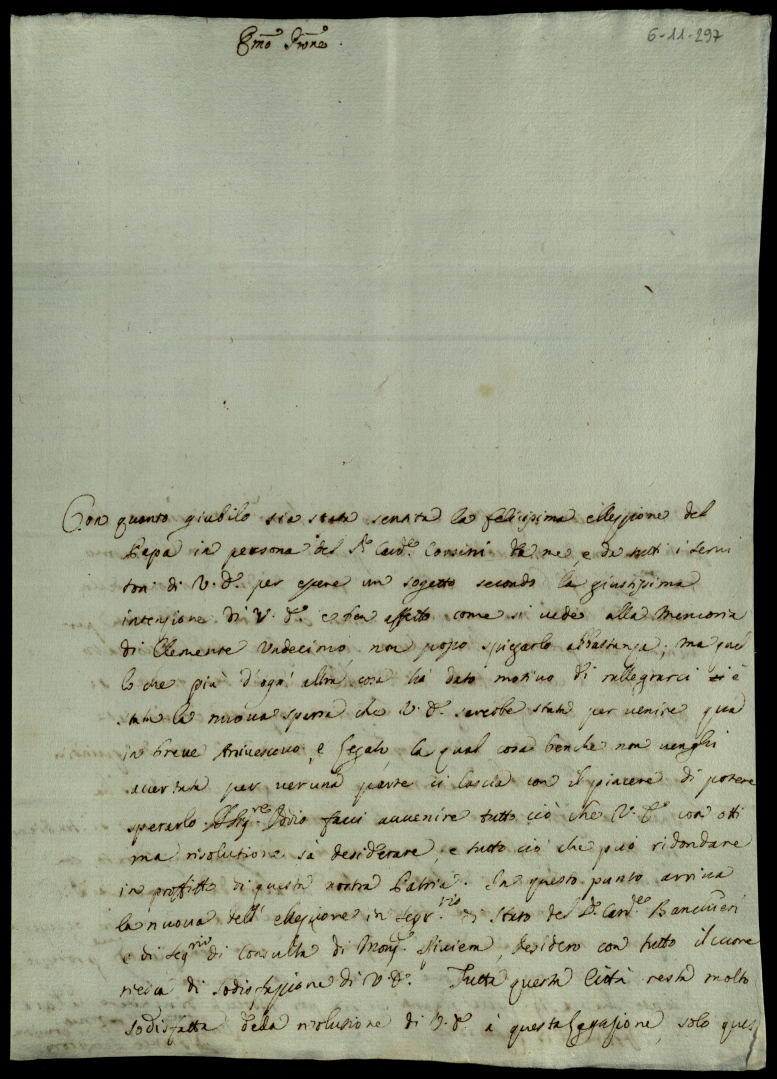 Em̄o Prōne.
6-11-297
Con quanto giubilo sia stata sentita la felicissima ellezzione del
Papa in persona del Sr. Card.e Corsini da me, e da tutti i servi
tori di V. E.a per essere un sogetto secondo la giustissima
intenzione di V. E.a e ben affetto come si vede alla Memoria
di Clemente Undecimo, non posso spiegarlo abbastanza; ma quel
lo che più d'ogn' altra cosa hà dato motivo di rallegrarci si è
stata la nuova sparsa che V. E.a sarebbe stata per venire quà
in breve Arcivescovo, e Legato, la qual cosa benche non venghi
accertata per veruna parte ci lascia con il piacere di potere
sperarlo. Il Sig.re Iddio facci avvenire tutto ciò che V. E.a con otti
ma risolutione sà desiderare, e tutto ciò che può ridondare
in proffitto di questa nostra Patria. In questo punto arriva
la nuova dell' ellezzione in Segr.rio di Stato del Sr. Card.e Banchieri
e di Seg.rio di Consulta di Mons.r, desidero con tutto il cuore
riesca di sodisfazzione di V. E.a Tutta questa Città resta molto
sodisfatta della risoluzione di V. E.a à questa Legazione, solo ques